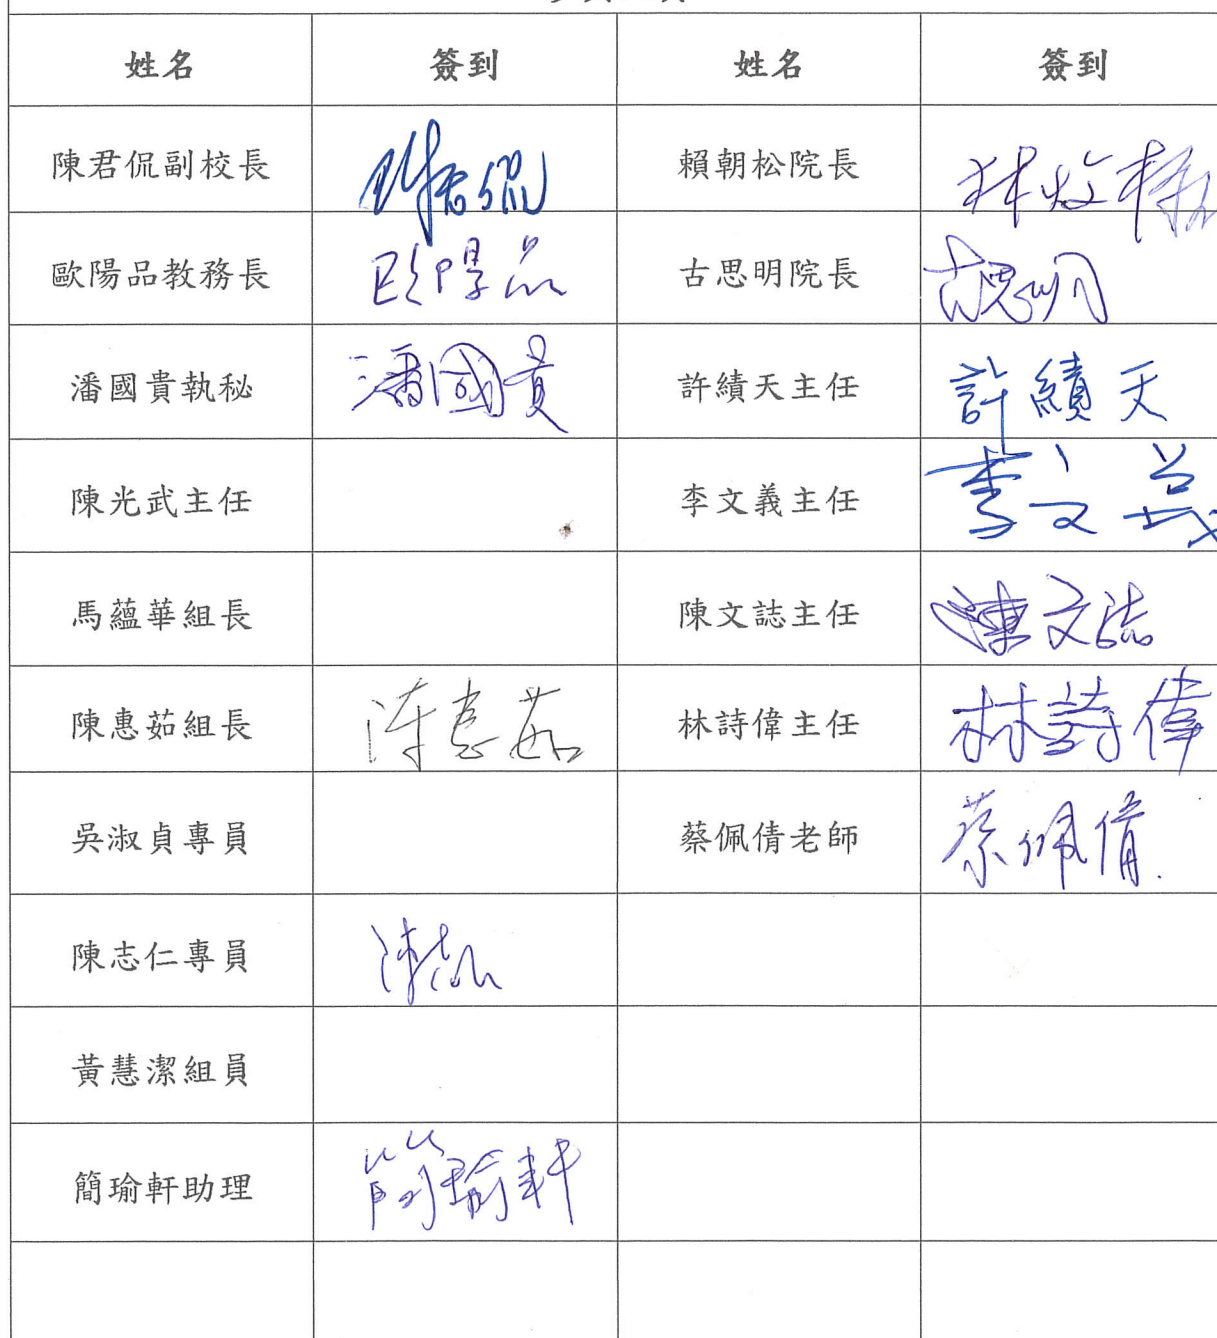 姓名 簽到 姓名 簽到
陳君侃副校長 陳君侃 賴朝松院長
歐陽品教務長 歐陽品 古思明院長 古思明
潘國貴執秘 潘國貴 許績天主任 許績天
陳光武主任 李文義主任 李文義
馬蘊華組長 陳文誌主任 陳文誌
陳惠茹組長 陳惠茹 林詩偉主任 林詩偉
吳淑貞專員 蔡佩倩老師 蔡佩倩
陳志仁專員 陳志仁
黃慧潔組員
簡瑜軒助理 簡瑜軒